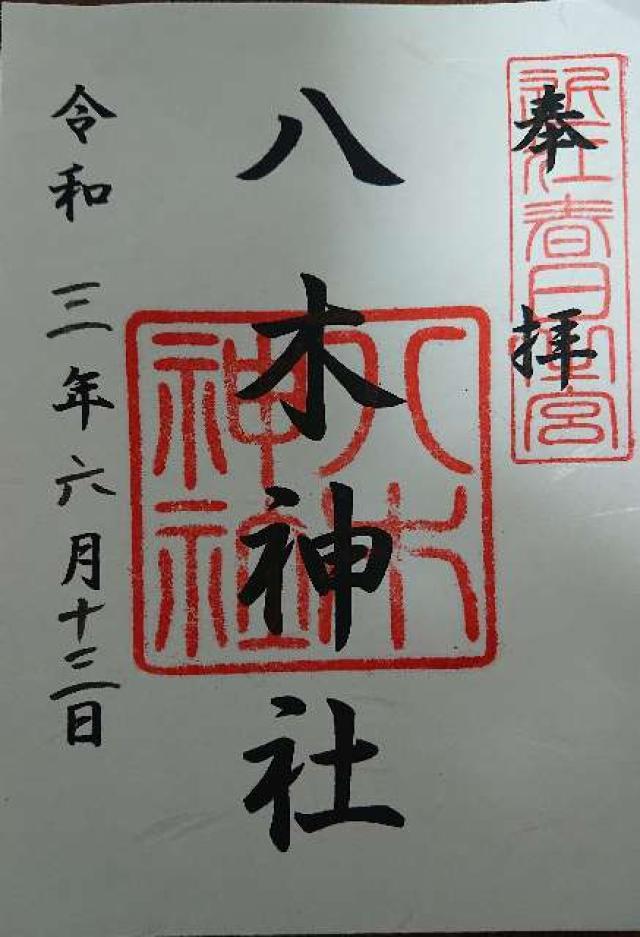 奉拝
近江春日御宮
八木神社
八木神社
令和三年六月十三日